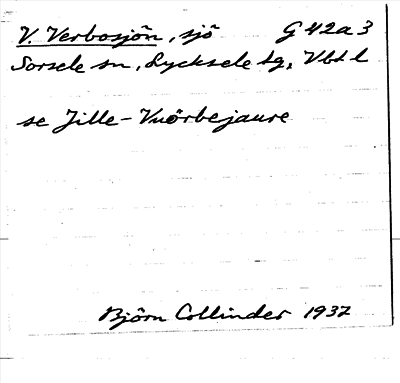 V. Verbosjön, sjö G 42a 3
Sorsele sn, Lycksele tg, Vbt l
se Jille-Vuörbejaure
Björn Collinder 1937